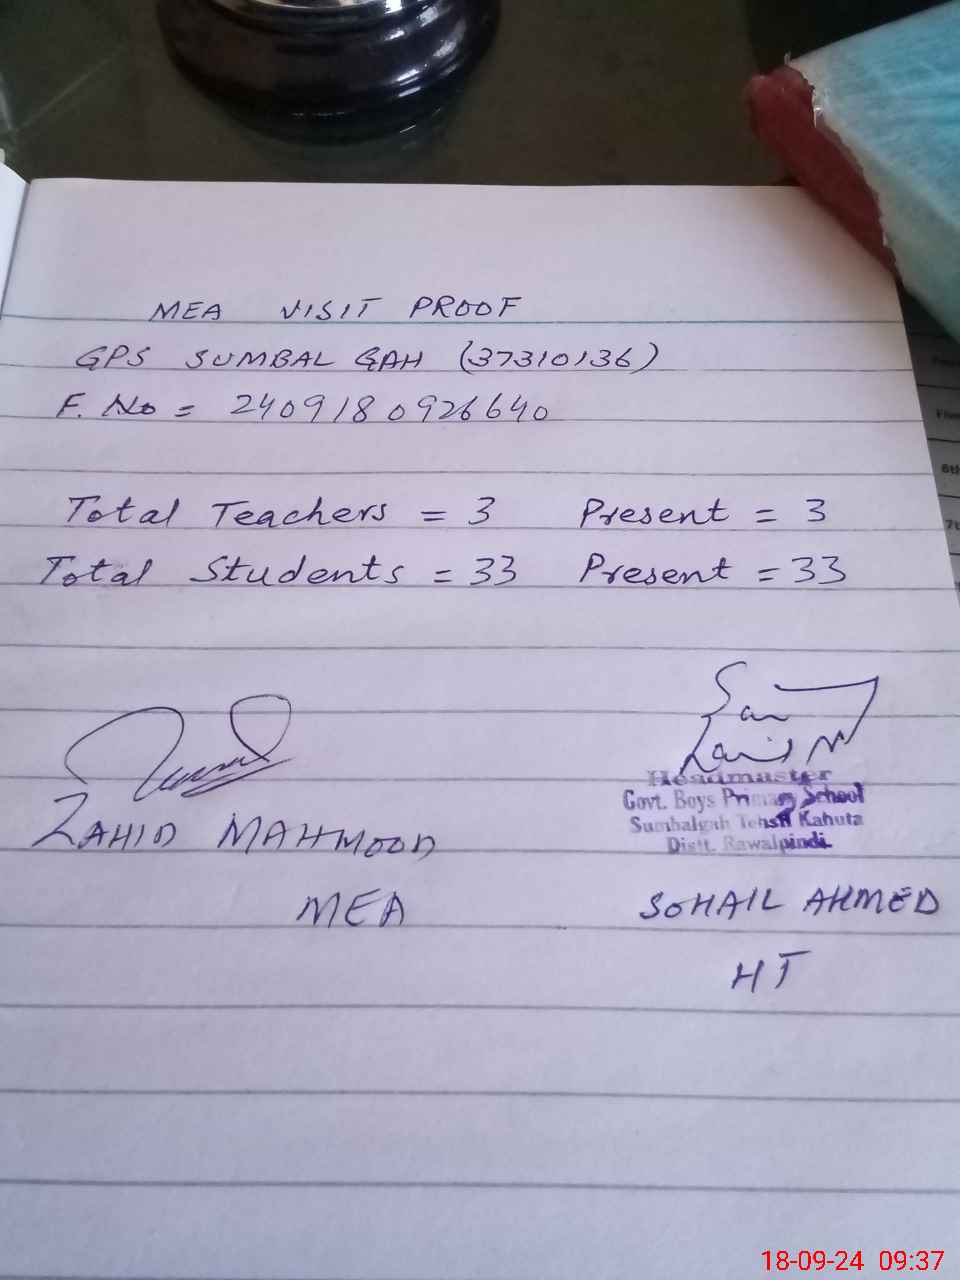 MEA VISIT PROOF
GPS SUMBAL GAH (37310136)
F. No = 2409180926640
Total Teachers = 3 Present = 3
Total Students = 33 Present = 33
Headmaster
Govt. Boys Primary School
Sumbalgah Tehsil Kahuta
Distt. Rawalpindi.
ZAHID MAHMOOD
MEA
SOHAIL AHMED
HT
6th
18-09-24 09:37